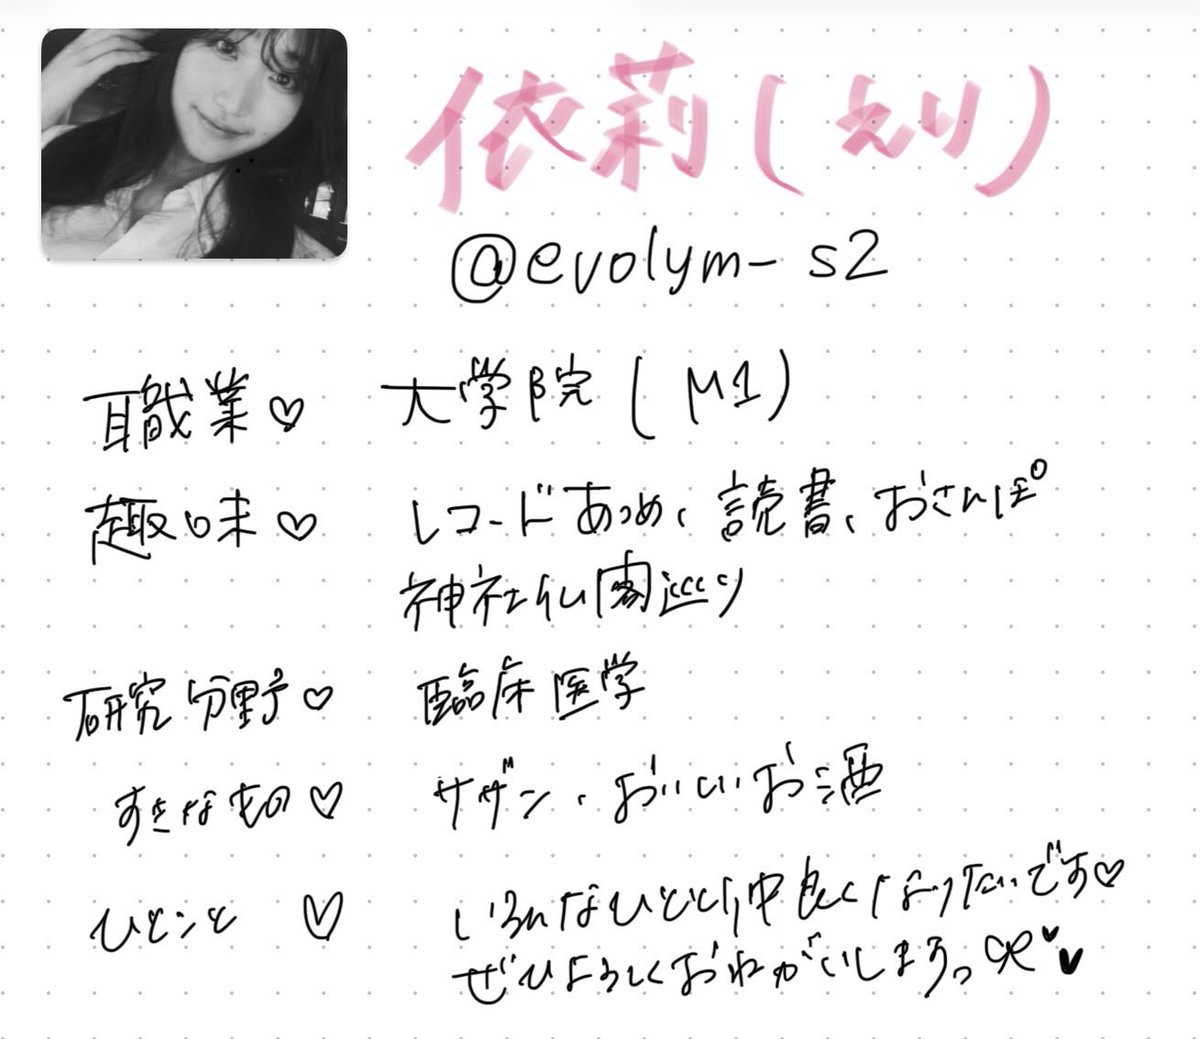 依莉(えり)
@evolym_s2
職業♡ 大学院(M1)
趣味♡ レコードあつめ、読書、おさんぽ
神社仏閣巡り
研究分野♡ 臨床医学
すきなもの♡ サザン、おいしいお酒
ひとこと♡ いろんなひとと仲良くなりたいです♡
ぜひよろしくおねがいしまうっ